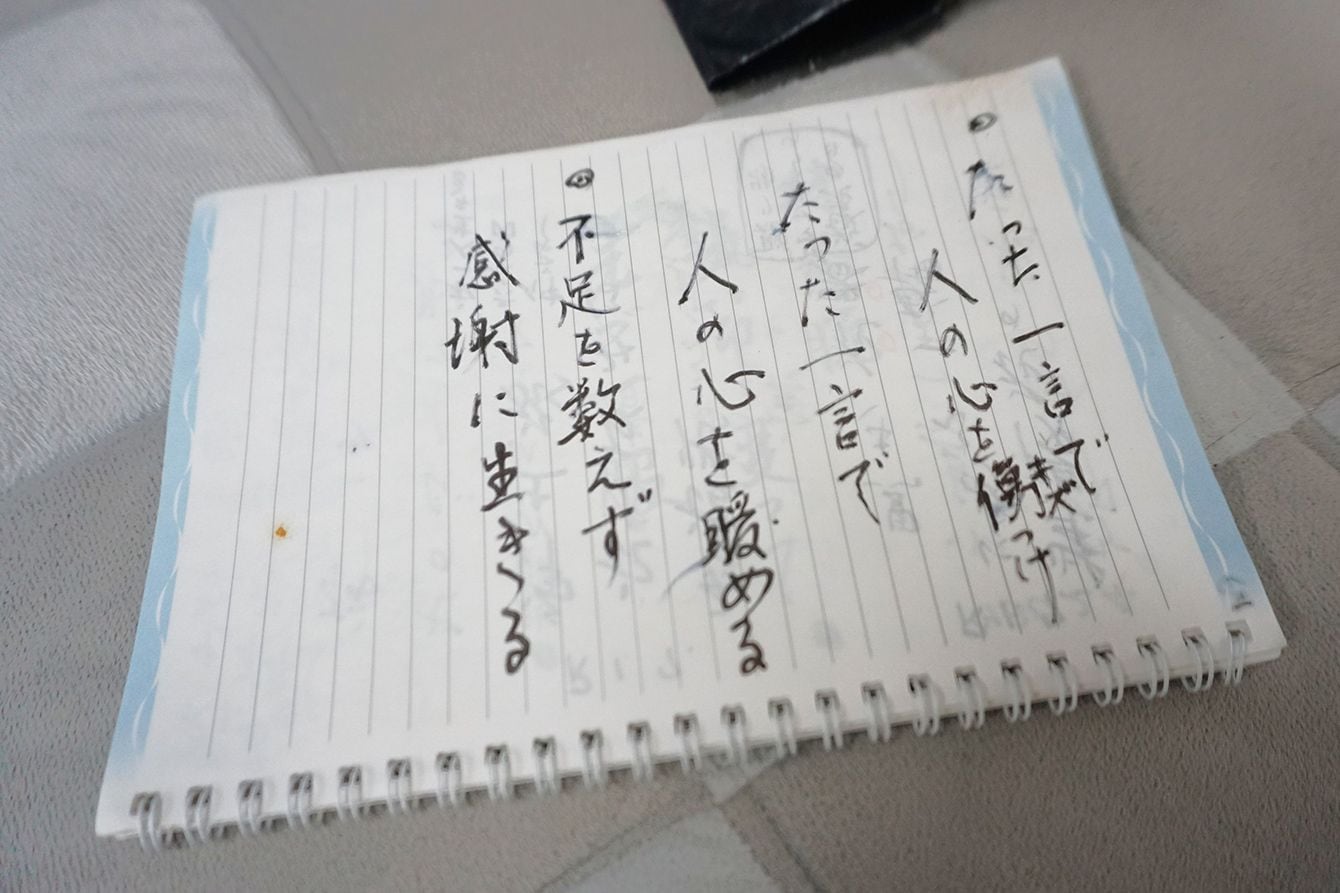 ◎ たった一言で
人の心を傷つけ
たった一言で
人の心を暖める
◎ 不足を数えず
感謝に生きる